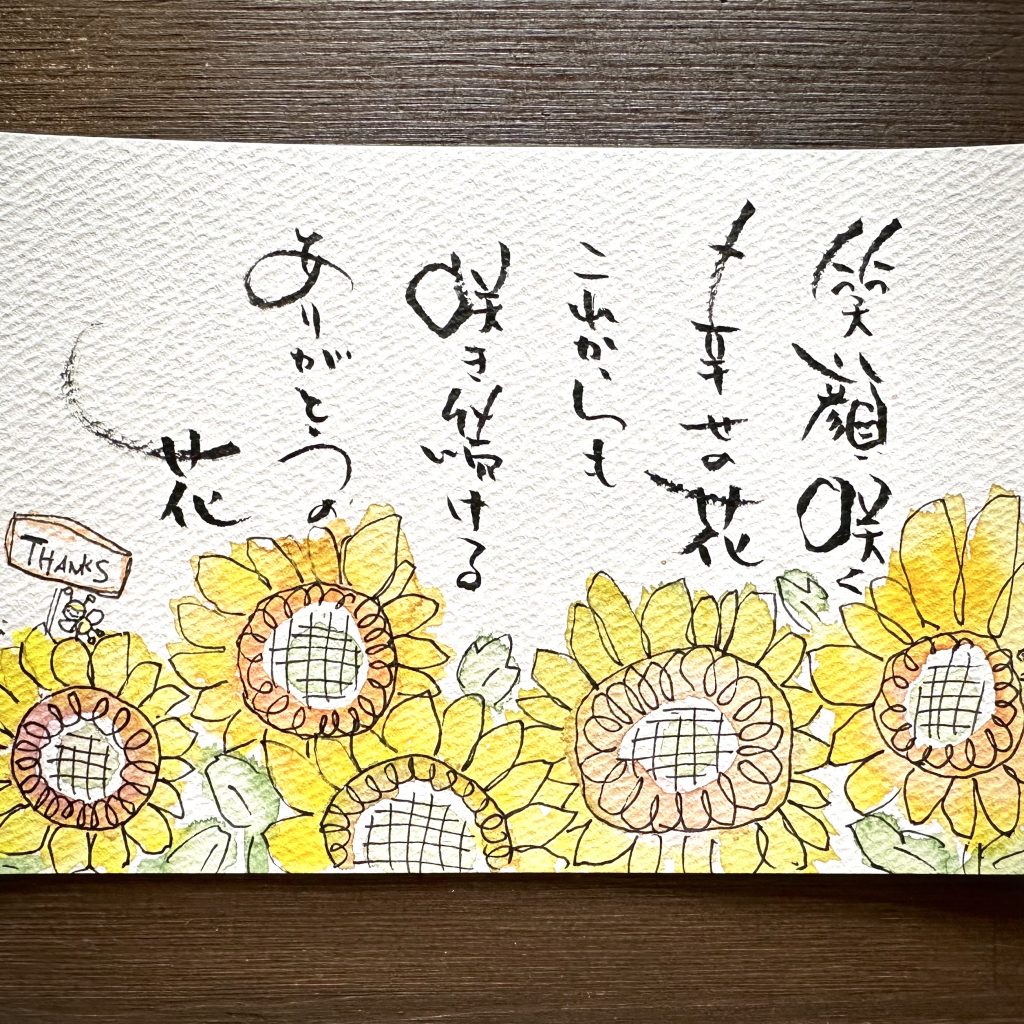 笑顔咲く
幸せの花
これからも
咲き続ける
ありがとうの
花
THANKS